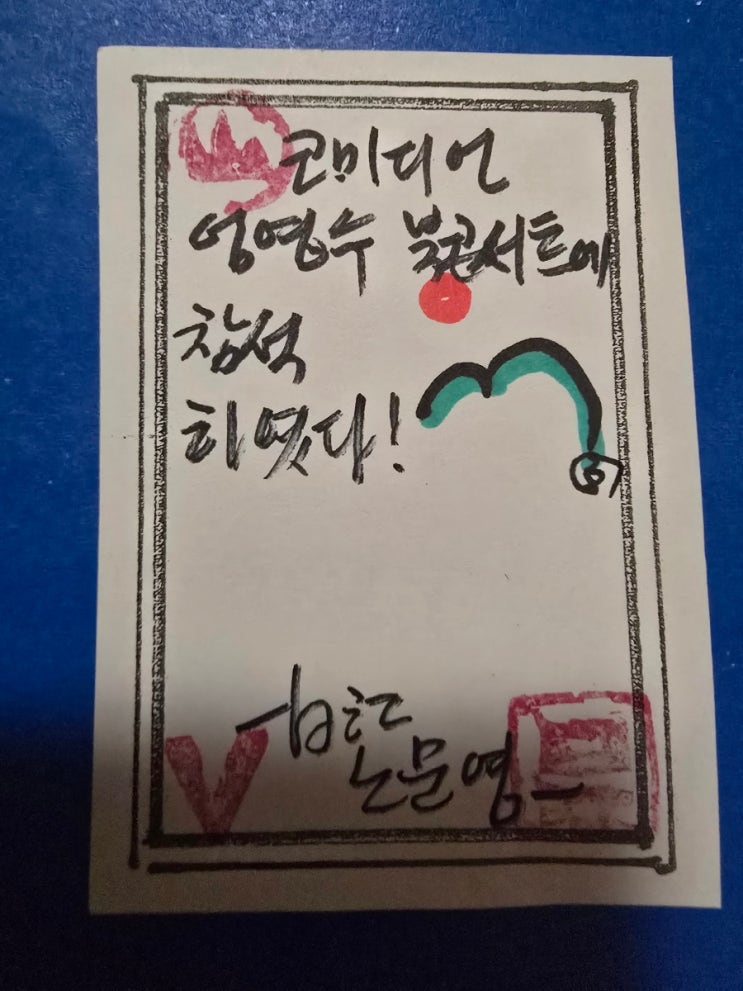 코미디언
엄영수 북콘서트에
참석
하였다!
노문영